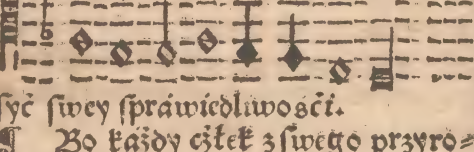 syć ſwey ſpráwiedliwośći.
¶ Bo káżdy cżłek z ſwego przyro⸗